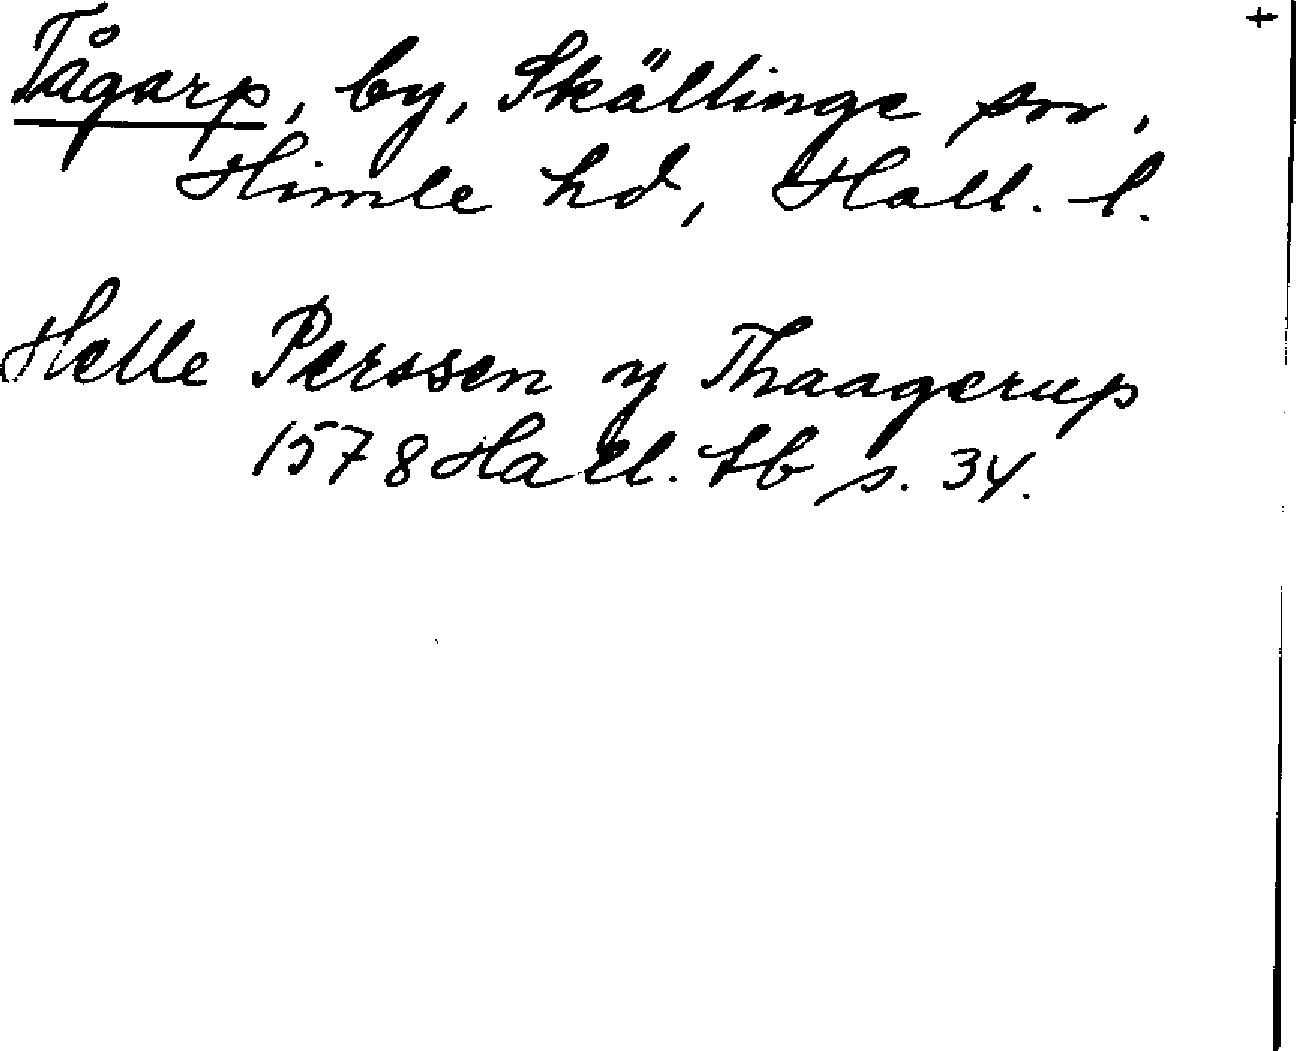 +
Tågarp, by, Skällinge sn,
Himle hd, Hall. l.
Helle Perssen y Thaagerup
1578 Hall. tb s. 34.